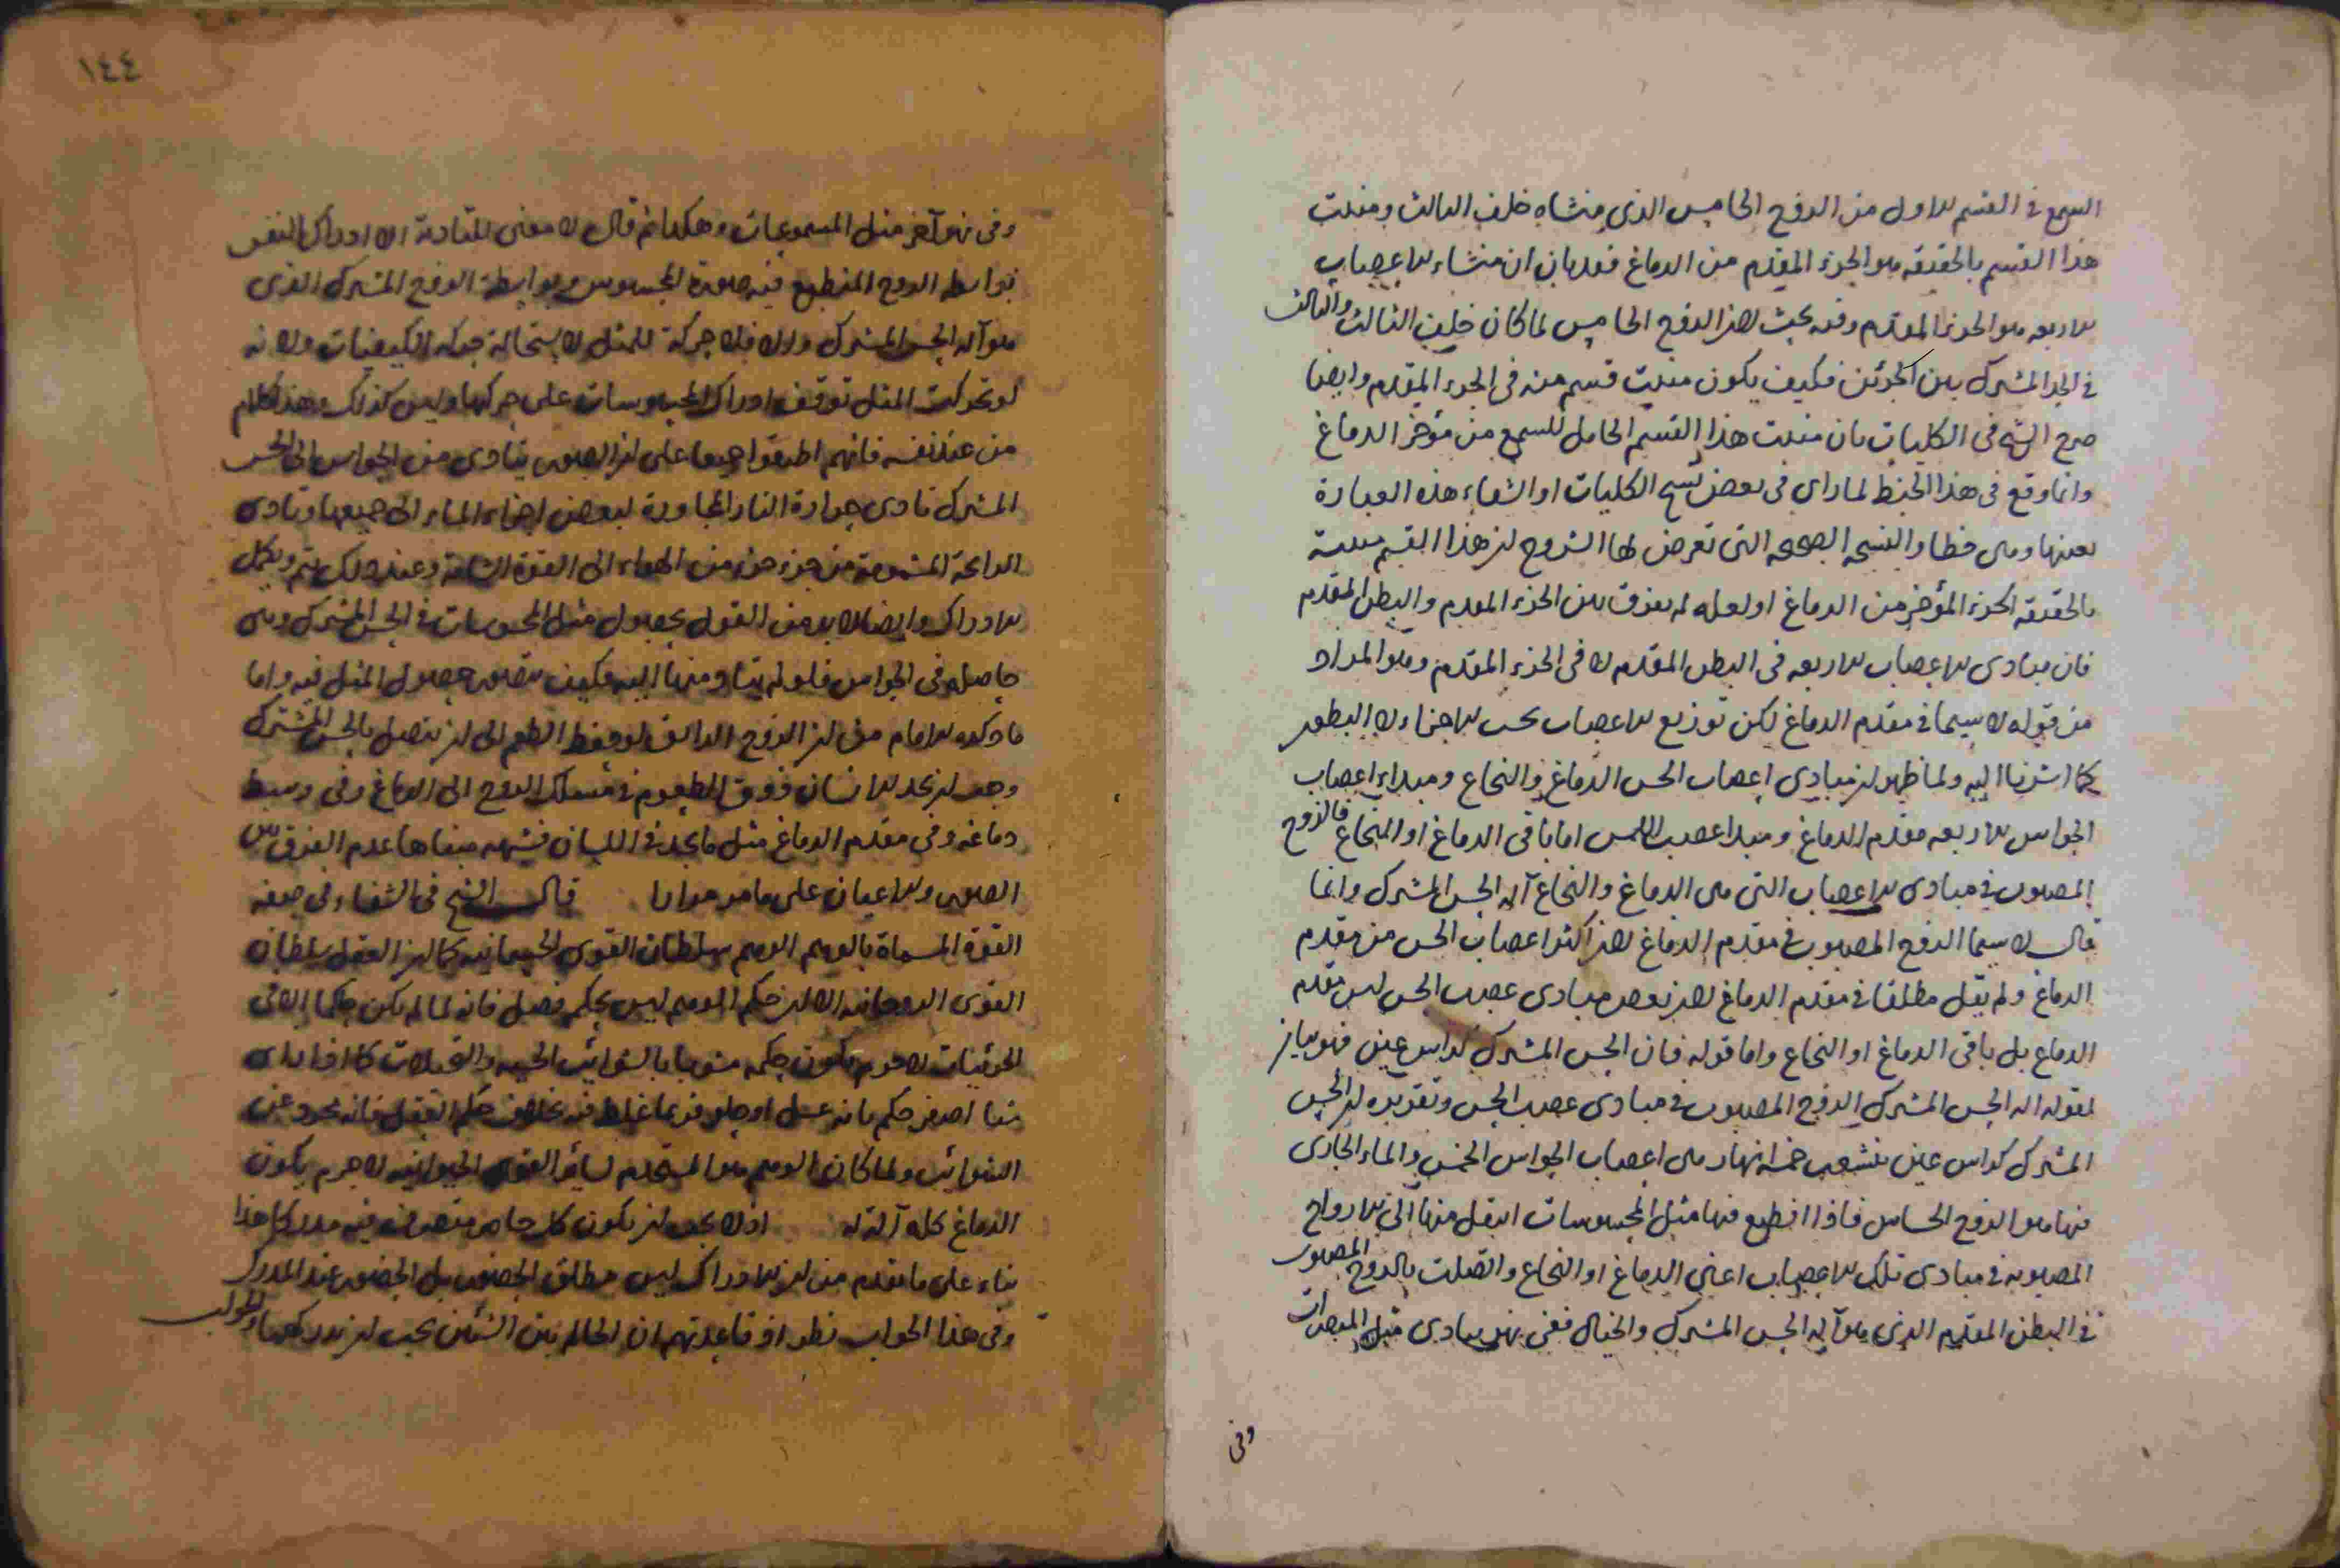 السمع فى القسم الاول من الزوج الخامس الذى منشاه خلف الثالث ومنبت
هذا القسم بالحقيقه هو الجزء المقدم من الدماغ فقد بان ان منشاء الاعصاب
الاربعه هو الجزء المقدم وفيه بحث لان الزوج الخامس لما كان خلف الثالث والثالث
فى الحد المشترك بين الجزئين فكيف يكون منبت قسم منه فى الجزء المقدم وايضا
صرح الشيخ فى الكليات بان منبت هذا القسم الحامل للسمع من مؤخر الدماغ
وانما وقع فى هذا الخبط لما راى فى بعض نسخ الكليات او الشفاء هذه العبارة
بعينها وهى خطا والنسخه الصحيحه التى تعرض لها الشروح ان هذا القسم منبته
بالحقيقه الجزء المؤخر من الدماغ او لعله لم يفرق بين الجزء المقدم والبطن المقدم
فان مبادى الاعصاب الاربعه فى البطن المقدم لا فى الجزء المقدم وهو المراد
من قوله لا سيما فى مقدم الدماغ لكن توزيع الاعصاب بحسب الاجزاء لا البطون
كما اشرنا اليه ولما ظهر ان مبادى اعصاب الحس الدماغ والنخاع ومبداء اعصاب
الحواس الاربعه مقدم الدماغ ومبدا عصب اللمس اما باقى الدماغ او النخاع فالروح
المصبوب فى مبادى الاعصاب التى هى الدماغ والنخاع آله الحس المشترك وانما
قال لا سيما الروح المصبوب فى مقدم الدماغ لان اكثر اعصاب الحس من مقدم
الدماغ ولم يقل مطلقا فى مقدم الدماغ لان بعض مبادى عصب الحس ليس مقدم
الدماغ بل باقى الدماغ او النخاع واما قوله فان الحس المشترك كراس عين فهو بيان
لقوله اله الحس المشترك الروح المصبوب فى مبادى عصب الحس وتقريره ان الحس
المشترك كراس عين ينشعب خمسة انهار هى اعصاب الحواس الخمس والماء الجارى
فيها هو الروح الحساس فاذا انطبع فيها مثل المحسوسات انتقل منها الى الارواح
المصبوبه فى مبادى تلك الاعصاب اعنى الدماغ او النخاع واتصلت بالروح المصبوب
فى البطن المقدم الذى هو آله الحس المشترك والخيال ففى نهر يتادى مثل المبصرات
وفى
١٤٤
وفى نهر آخر مثل المسموعات وهكذا ثم قال لا معنى للتادية الا ادراك النفس
بواسطه الروح المنطبع فيه صورة المحسوس وبواسطة الروح المشترك الذى
هو آله الحس المشترك والا فلا حركة للمثل لاستحالة حركه الكيفيات ولانه
لو تحركت المثل توقف ادراك المحسوسات على حركتها وليس كذلك وهذا كلام
من عند نفسه فانهم اطبقوا جميعا على ان الصور يتادى من الحواس الى الحس
المشترك تادى حرارة النار المجاورة لبعض اجزاء الماء الى جميعها وتادى
الرائحة المشمومة من جزء جزء من الهواء الى القوة الشامة وعند ذلك يتم ويكمل
الادراك وايضا لا بد من القول بحصول مثل المحسوسات فى الحس المشترك وهى
حاصله فى الحواس فلو لم يتاد منها اليه فكيف يتصور حصول المثل فيه واما
ما ذكره الامام من ان الروح الذائق لو حفظ الطعم الى ان يتصل بالحس المشترك
وجب ان يجد الانسان ذوق المطعوم فى مسلك الروح الى الدماغ وفى وسط
دماغه وفى مقدم الدماغ مثل ما يجد فى اللسان فشبهه مبناها عدم الفرق بين
الصور والاعيان على ما مر مرارا قال الشيخ فى الشفاء فى صفه
القوة المسماة بالوهم الوهم سلطان القوى الجسمانيه كما ان العقل سلطان
القوى الروحانيه الا ان حكم الوهم ليس بحكم فصل فانه لما لم يكن حاكما الا فى
الجزئيات لا جرم يكون حكمه مشوبا بالشوائب الحسيه والتخيلات كما اذا راى
شيا اصفر حكم بانه عسل او حلو فربما غلط فيه بخلاف حكم العقل فانه مجرد عن
الشوائب ولما كان الوهم هو المستخدم لسائر القوى الحيوانيه لا جرم يكون
الدماغ كله آلة له اذ لا يجب ان يكون كل حاضر متصرف فيه مدركا هذا
بناء على ما تقدم من ان الادراك ليس مطلق الحضور بل الحضور عند المدرك
وفى هذا الجواب نظر اذ قاعدتهم ان الحاكم بين الشيئين يجب ان يدركهما والجواب